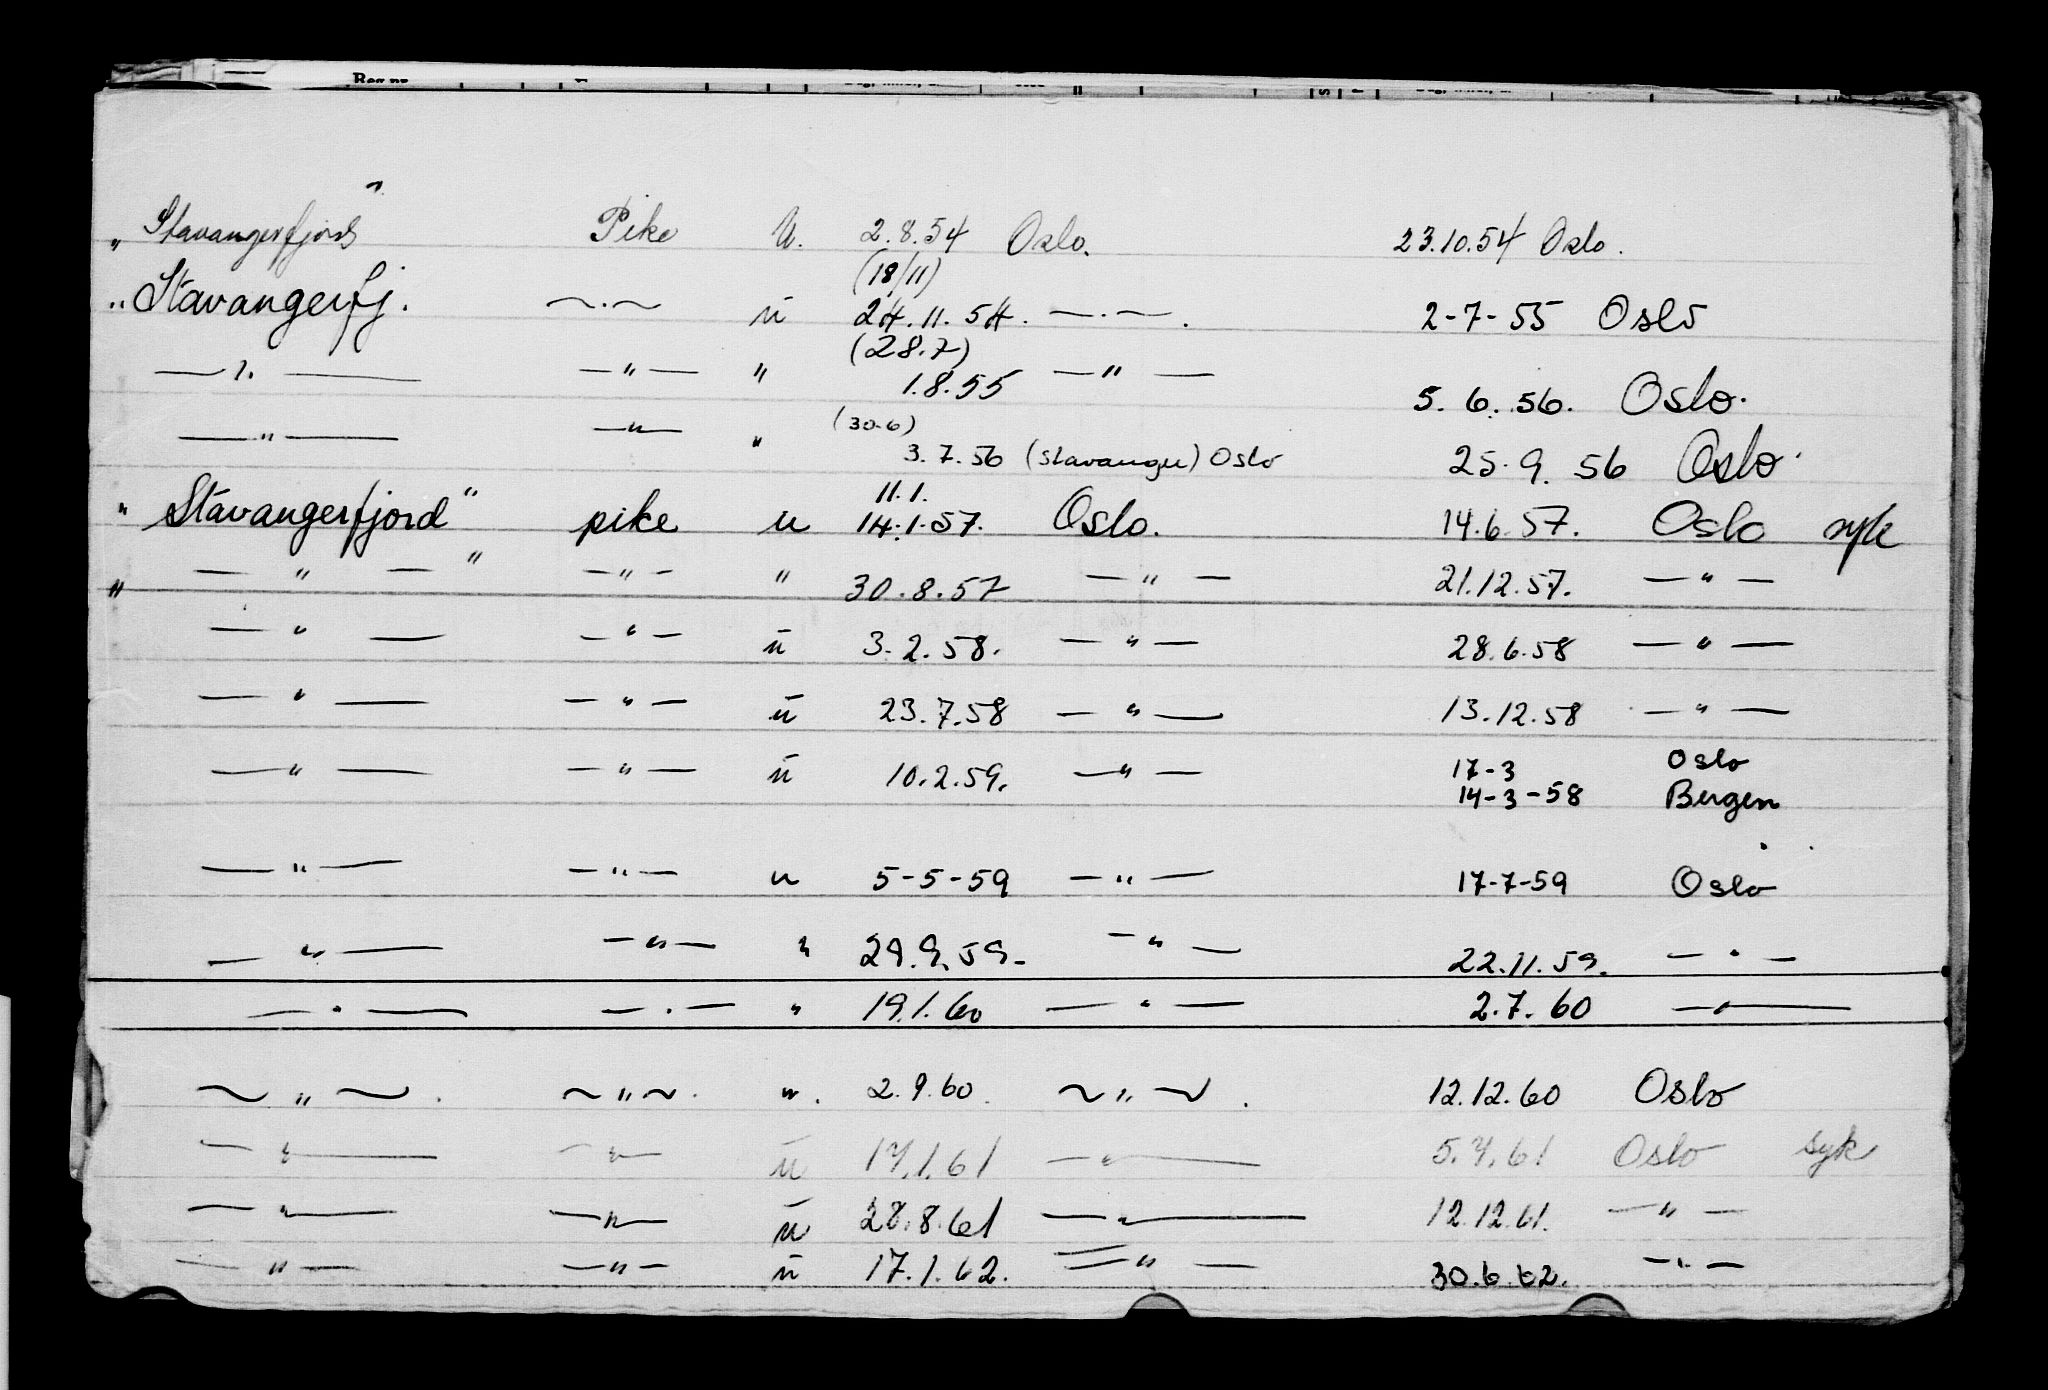 Reg.nr.
„ Stavangerfjord " Pike U. 2.8.54 Oslo. 23.10.54 Oslo.
(18/11)
„ Stavangerfj. ~·~ u 24.11.54. —·—. 2-7-55 Oslo
(28.7)
—"— —"— " 1.8.55 —"— 5.6.56. Oslo.
(30.6)
—"— —"— " 3.7.56 (Stavanger) Oslo 25.9.56 Oslo
11.1.
" Stavangerfjord" pike u 14.1.57. Oslo. 14.6.57. Oslo syk
" —"—" —"— " 30.8.57 —"— 21.12.57. —"—
—"— —"— u 3.2.58. —"— 28.6.58 —"—
—"— —"— u 23.7.58 —"— 13.12.58 —"—
17-3 Oslo
—"— —"— u 10.2.59. —"— 14-3-58 Bergen
—"— —"— u 5-5-59 —"— 17-7-59 Oslo
—"— —"— " 29.9.59. —"— 22.11.59. —"—
—"— —·— " 19.1.60 —"— 2.7.60 —"—
~"~. ~"~. ". 2.9.60. ~"~. 12.12.60 Oslo
—"— —"— u 17.1.61 —"— 5.7.61 Oslo syk
—"— —"— u 28.8.61 —"— 12.12.61. —"—
—"— —"— u 17.1.62. —"— 30.6.62. —"—